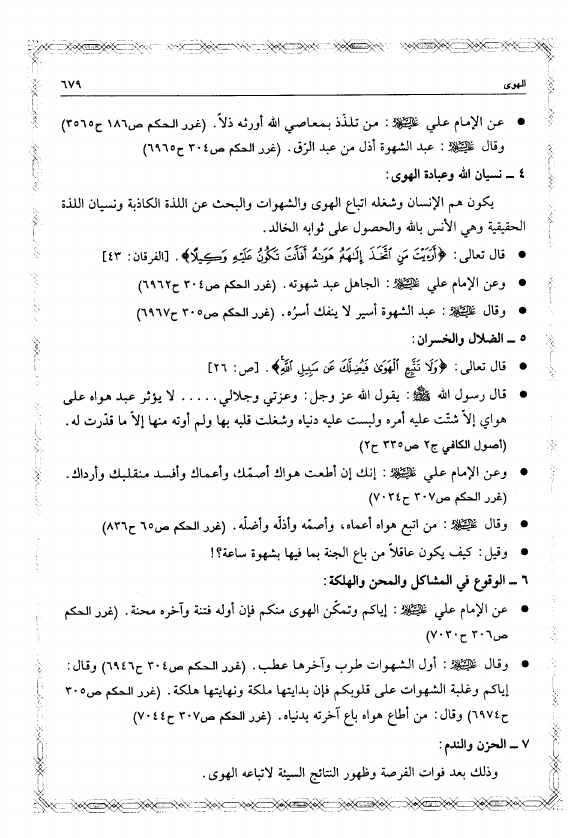 الهوى ٦٧٩
● عن الإمام علي عليه السلام: من تلذذ بمعاصي الله أورثه ذلاً. (غرر الحكم ص١٨٦ ح٣٥٦٥)
وقال عليه السلام: عبد الشهوة أذل من عبد الرّق. (غرر الحكم ص٣٠٤ ح٦٩٦٥)
٤ ـ نسيان الله وعبادة الهوى:
يكون هم الإنسان وشغله اتباع الهوى والشهوات والبحث عن اللذة الكاذبة ونسيان اللذة
الحقيقية وهي الأنس بالله والحصول على ثوابه الخالد.
● قال تعالى: ﴿أَرَءَيْتَ مَنِ ٱتَّخَذَ إِلَٰهَهُۥ هَوَىٰهُ أَفَأَنتَ تَكُونُ عَلَيْهِ وَكِيلًا﴾. [الفرقان: ٤٣]
● وعن الإمام علي عليه السلام: الجاهل عبد شهوته. (غرر الحكم ص٣٠٤ ح٦٩٦٢)
● وقال عليه السلام: عبد الشهوة أسير لا ينفك أسرُه. (غرر الحكم ص٣٠٥ ح٦٩٦٧)
٥ ـ الضلال والخسران:
● قال تعالى: ﴿وَلَا تَتَّبِعِ ٱلْهَوَىٰ فَيُضِلَّكَ عَن سَبِيلِ ٱللَّهِ﴾. [ص: ٢٦]
● قال رسول الله ﷺ: يقول الله عز وجل: وعزتي وجلالي..... لا يؤثر عبد هواه على
هواي إلاّ شتّت عليه أمره ولبست عليه دنياه وشغلت قلبه بها ولم أوته منها إلاّ ما قدّرت له.
(أصول الكافي ج٢ ص٣٣٥ ح٢)
● وعن الإمام علي عليه السلام: إنك إن أطعت هواك أصمّك وأعماك وأفسد منقلبك وأرداك.
(غرر الحكم ص٣٠٧ ح٧٠٣٤)
● وقال عليه السلام: من اتبع هواه أعماه، وأصمّه وأذلّه وأضلّه. (غرر الحكم ص٦٥ ح٨٣٦)
● وقيل: كيف يكون عاقلاً من باع الجنة بما فيها بشهوة ساعة؟!
٦ ـ الوقوع في المشاكل والمحن والهلكة:
● عن الإمام علي عليه السلام: إياكم وتمكّن الهوى منكم فإن أوله فتنة وآخره محنة. (غرر الحكم
ص٣٠٦ ح٧٠٣٠)
● وقال عليه السلام: أول الشهوات طرب وآخرها عطب. (غرر الحكم ص٣٠٤ ح٦٩٤٦) وقال:
إياكم وغلبة الشهوات على قلوبكم فإن بدايتها ملكة ونهايتها هلكة. (غرر الحكم ص٣٠٥
ح٦٩٧٤) وقال: من أطاع هواه باع آخرته بدنياه. (غرر الحكم ص٣٠٧ ح٧٠٤٤)
٧ ـ الحزن والندم:
وذلك بعد فوات الفرصة وظهور النتائج السيئة لاتباعه الهوى.